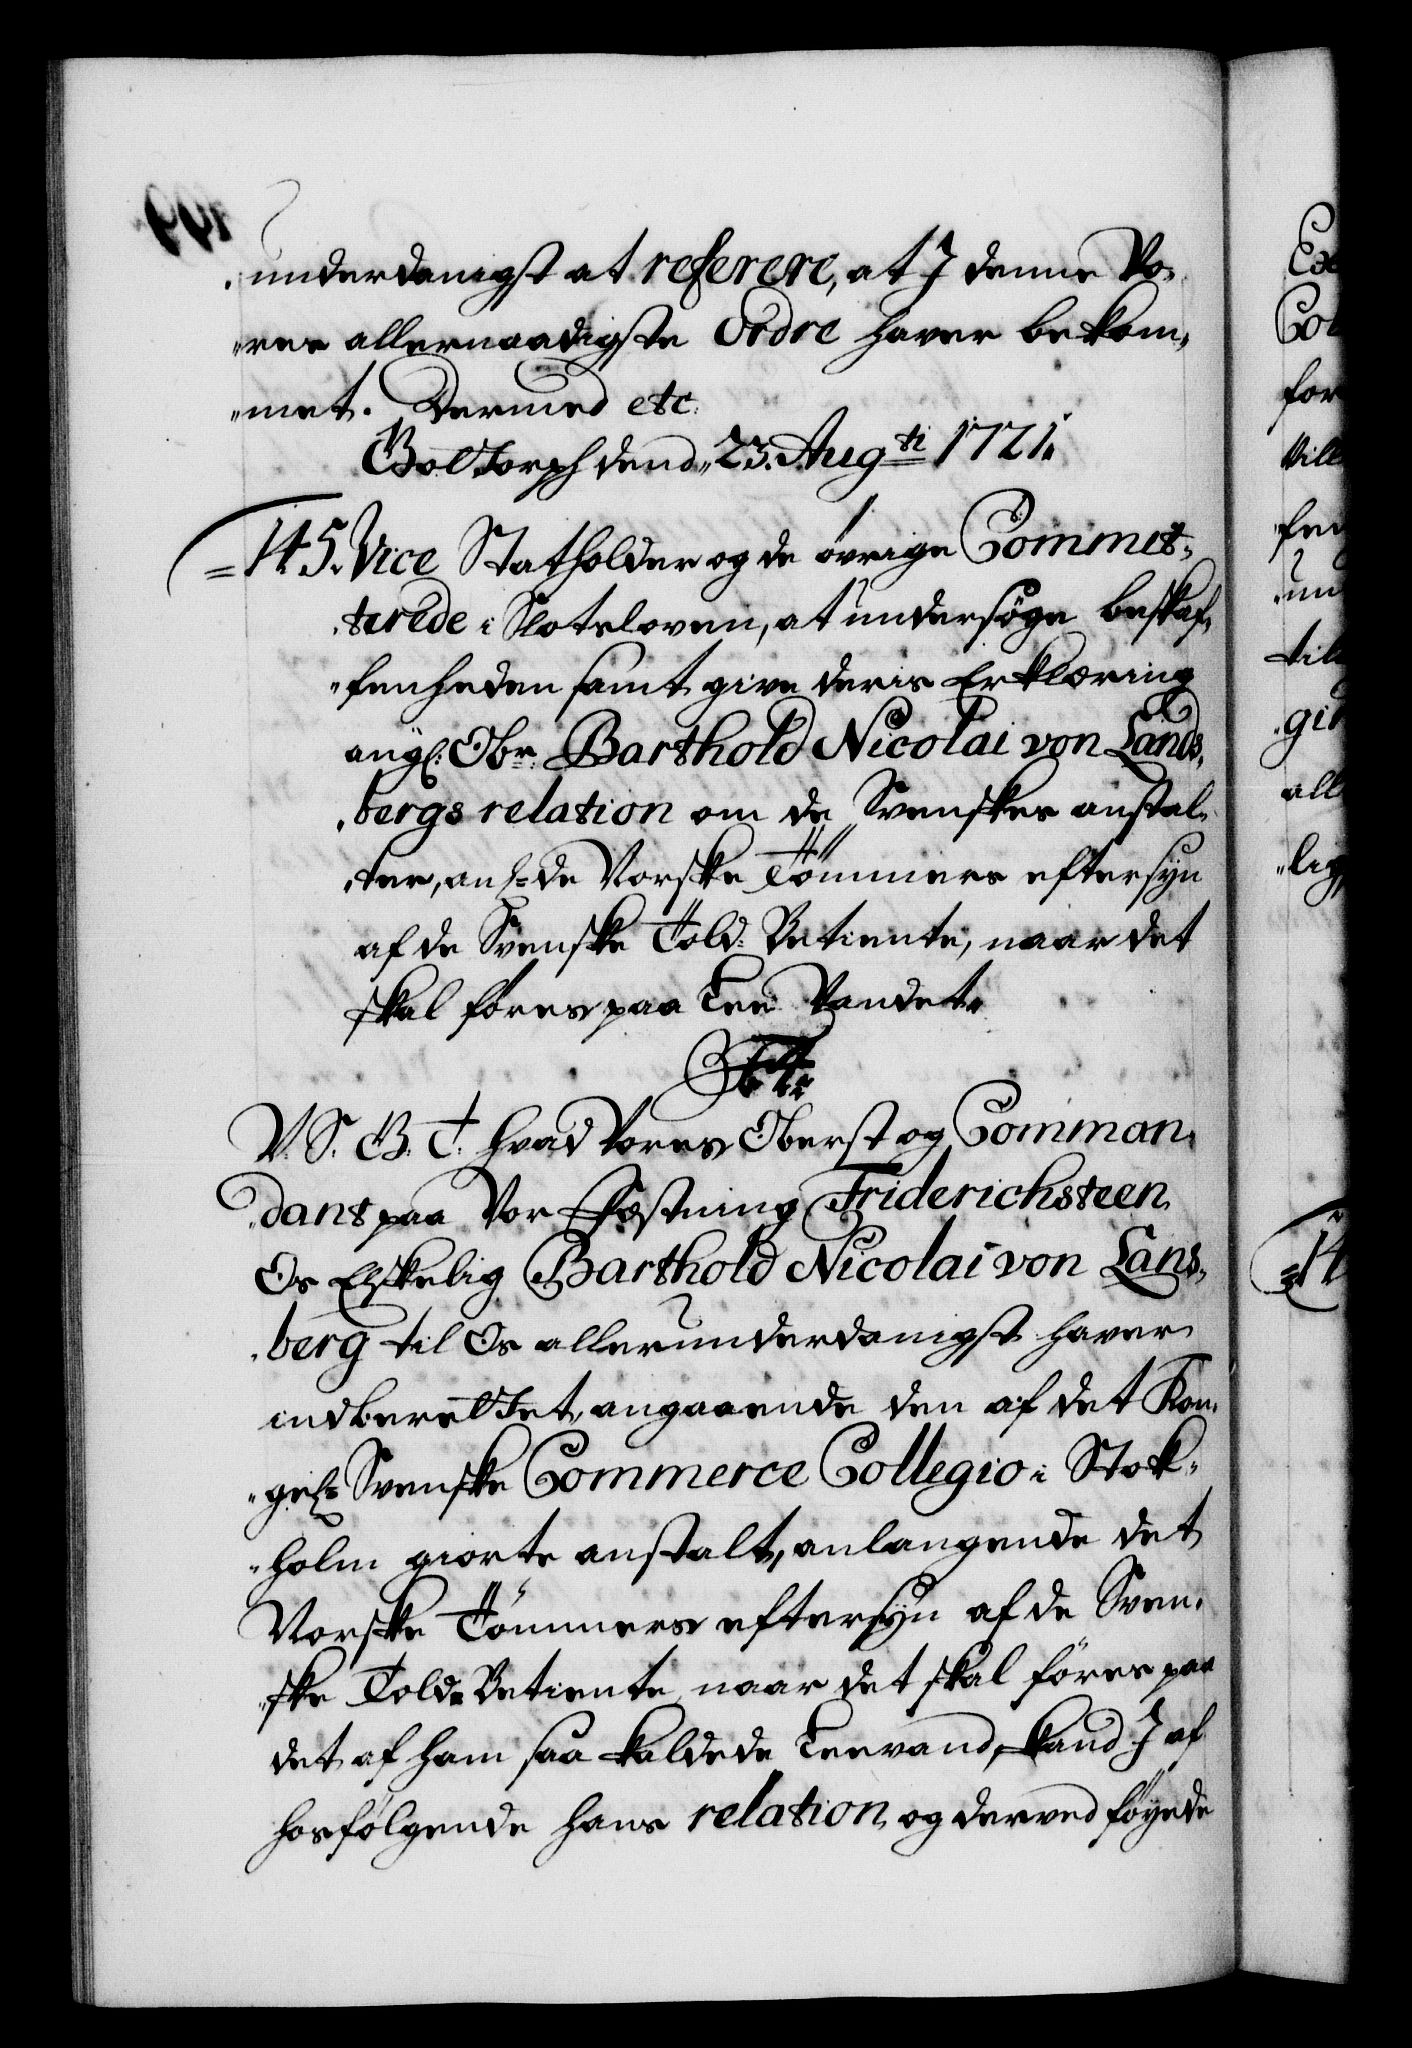 underdanigst at referere, at J denne Vo-
res allernaadigste Ordre haver bekom-
met. Dermed etc.
Gottorph dend 23. Augsti 1721.
145. Vice Statholder og de øvrige Commit-
terede i Slotsloven, at undersøge beskaf-
fenheden samt give deris Erklæring
angl. Obr. Barthold Nicolai von Lands-
bergs relation om de Svenskes anstal-
ter, anl. de Norske Tømmers eftersyn
af de Svenske Told-Betiente, naar det
skal føres paa Tee Vandet.
F. 4te
V. S. G. T. Hvad Vores Oberst og Comman-
dant paa Vor Fæstning Friderichsteen
Os Elskelig Barthold Nicolai von Lans-
berg til Os allerunderdanigst haver
indberettet, angaaende den af det Kon-
gel. Svenske Commerce Collegio i Stok-
holm giorte anstalt, anlangende det
Norske Tømmers eftersyn af de Sven-
ske Told-Betiente naar det skal føres paa
det af ham saa kaldede Teevand, kand J af
hosfølgende hans relation og derved føyede